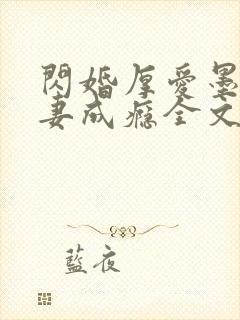 閃婚厚愛墨
妻成癮全文
藍夜